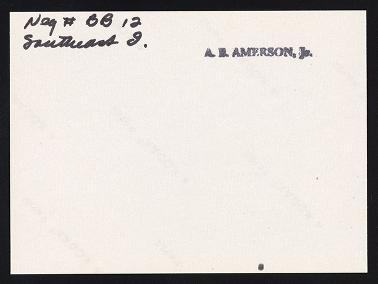 Neg # BB 12
Southeast I.
A. B. AMERSON, Jr.